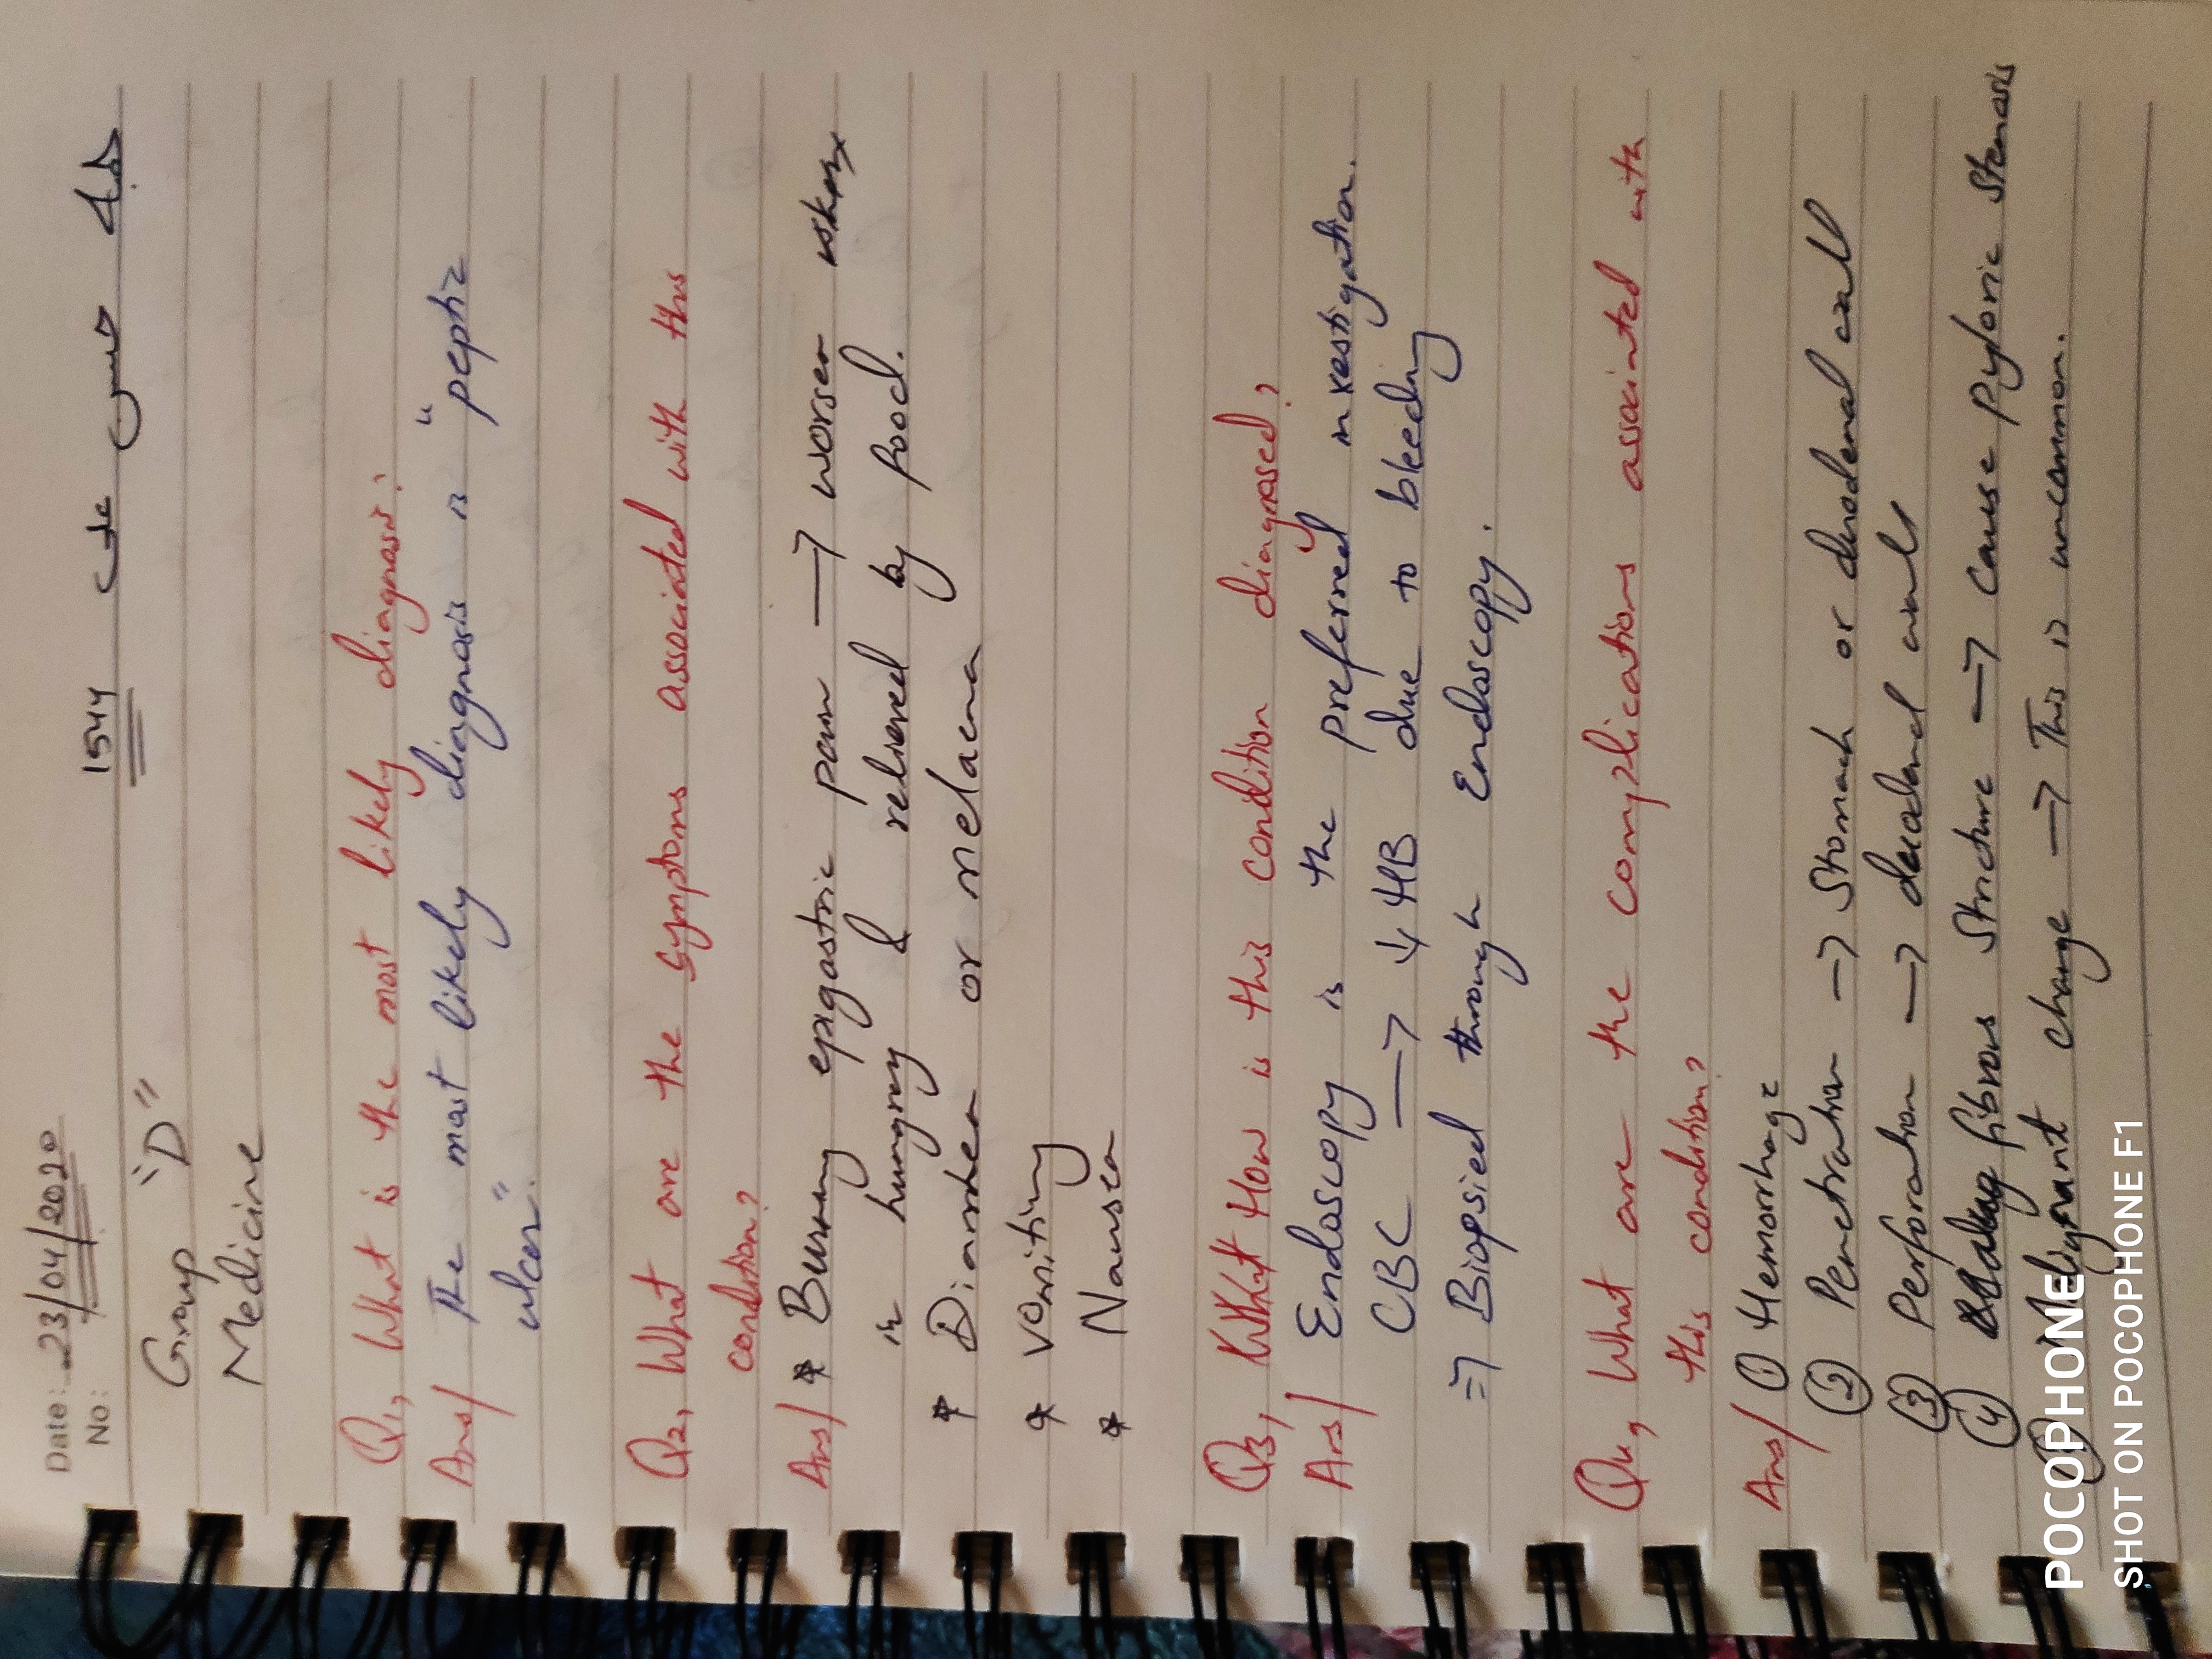 Date: 23/04/2020
No:
1544
Group "D"
Medicine
Q1, What is the most likely diagnosis?
Ans/ The most likely diagnosis is "peptic
ulcer".
Q2, What are the symptoms associated with this
condition?
Ans/ * Burning epigastric pain → worsen when
is hungry & relieved by food.
* Diarrhea or melaena
* Vomiting
* Nausea
Q3, How is this condition diagnosed?
Ans/ Endoscopy is the preferred investigation.
CBC → ↓ HB due to bleeding
⇒ Biopsied through Endoscopy.
Q4, What are the complications associated with
this condition?
Ans/ ① Hemorrhage
② Penetration → Stomach or duodenal wall
③ Perforation → duodenal wall
④ fibrous Stricture → Cause Pyloric Stenosis
Malignant change → This is uncommon.
POCOPHONE
SHOT ON POCOPHONE F1